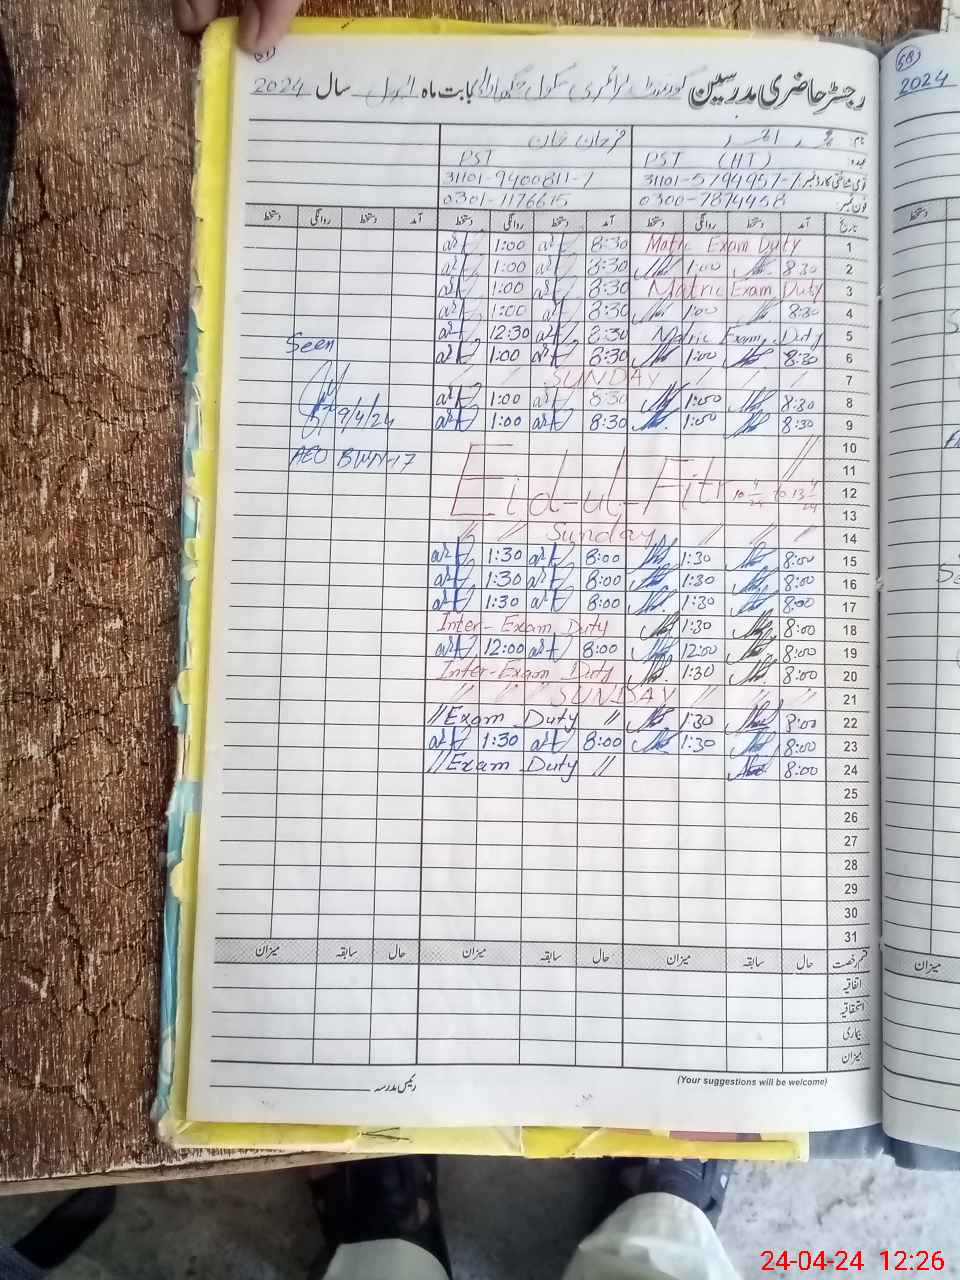 رجسٹر حاضری مدرسین گورنمنٹ پرائمری سکول بابت ماہ اپریل سال 2024
نام:
فرحان خان
عہدہ: PST (HT)
PST
قومی شناختی کارڈ نمبر: 31101-5794957-7
31101-9400811-7
فون نمبر: 0300-7874458
0301-7176615
تاریخ آمد دستخط روانگی دستخط آمد دستخط روانگی دستخط آمد دستخط روانگی دستخط
1 Matric Exam Duty 8:30 1:00
2 8:30 1:00 8:30 1:00
3 Matric Exam Duty 8:30 1:00
4 8:30 1:00 8:30 1:00
5 Matric Exam Duty 8:30 12:30
6 8:30 1:00 8:30 1:00
7 SUNDAY
8 8:30 1:00 8:30 1:00
9 8:30 1:00 8:30 1:00
Seen
9/4/24
AEO BWN-17
10
11
12 Eid-ul-Fitr 10 4/24 to 13 4/24
13
14 Sunday
15 8:00 1:30 8:00 1:30
16 8:00 1:30 8:00 1:30
17 8:00 1:30 8:00 1:30
18 8:00 1:30 Inter-Exam Duty
19 8:00 12:00 8:00 12:00
20 8:00 1:30 Inter-Exam Duty
21 SUNDAY
22 8:00 1:30 // Exam Duty //
23 8:00 1:30 8:00 1:30
24 8:00 // Exam Duty //
25
26
27
28
29
30
31
قسم رخصت حال سابقہ میزان حال سابقہ میزان حال سابقہ میزان
اتفاقیہ
استحقاقیہ
بیماری
میزان
رئیس مدرسہ
(Your suggestions will be welcome)
58
2024
میزان
24-04-24 12:26